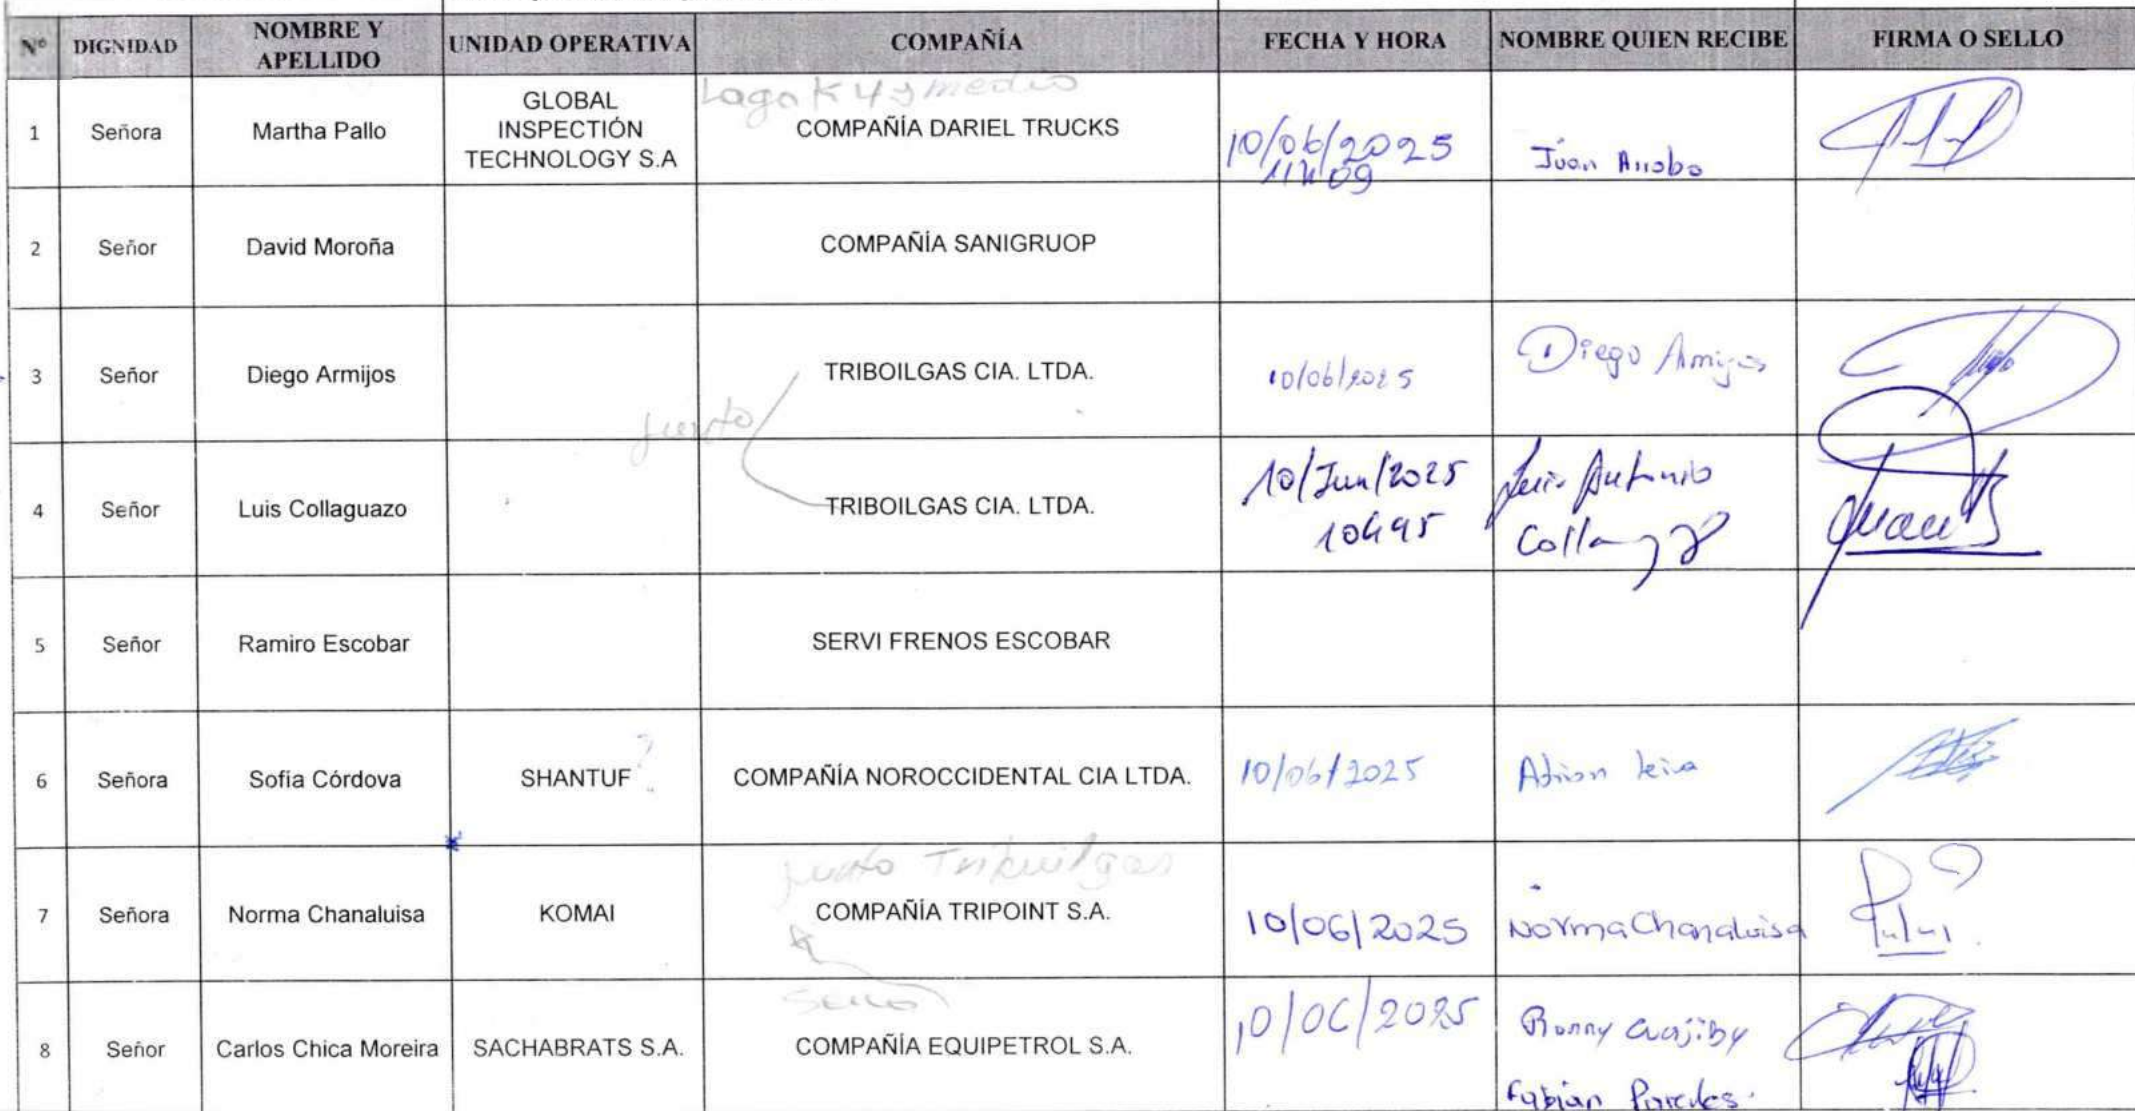 Nº DIGNIDAD NOMBRE Y APELLIDO UNIDAD OPERATIVA COMPAÑÍA FECHA Y HORA NOMBRE QUIEN RECIBE FIRMA O SELLO
Lago K 4 y medio
1 Señora Martha Pallo GLOBAL INSPECTIÓN TECHNOLOGY S.A COMPAÑÍA DARIEL TRUCKS 10/06/2025 11h09 Juan
2 Señor David Moroña COMPAÑÍA SANIGRUOP
3 Señor Diego Armijos TRIBOILGAS CIA. LTDA. 10/06/2025 Diego Armijos
junto
4 Señor Luis Collaguazo TRIBOILGAS CIA. LTDA. 10/Jun/2025 Luis Antonio
5 Señor Ramiro Escobar SERVI FRENOS ESCOBAR
6 Señora Sofia Córdova SHANTUF ? COMPAÑÍA NOROCCIDENTAL CIA LTDA. 10/06/2025
junto
7 Señora Norma Chanaluisa KOMAI COMPAÑÍA TRIPOINT S.A. 10/06/2025 Norma Chanaluisa
8 Señor Carlos Chica Moreira SACHABRATS S.A. COMPAÑÍA EQUIPETROL S.A. 10/06/2025 Ronny
Fabian Paredes.